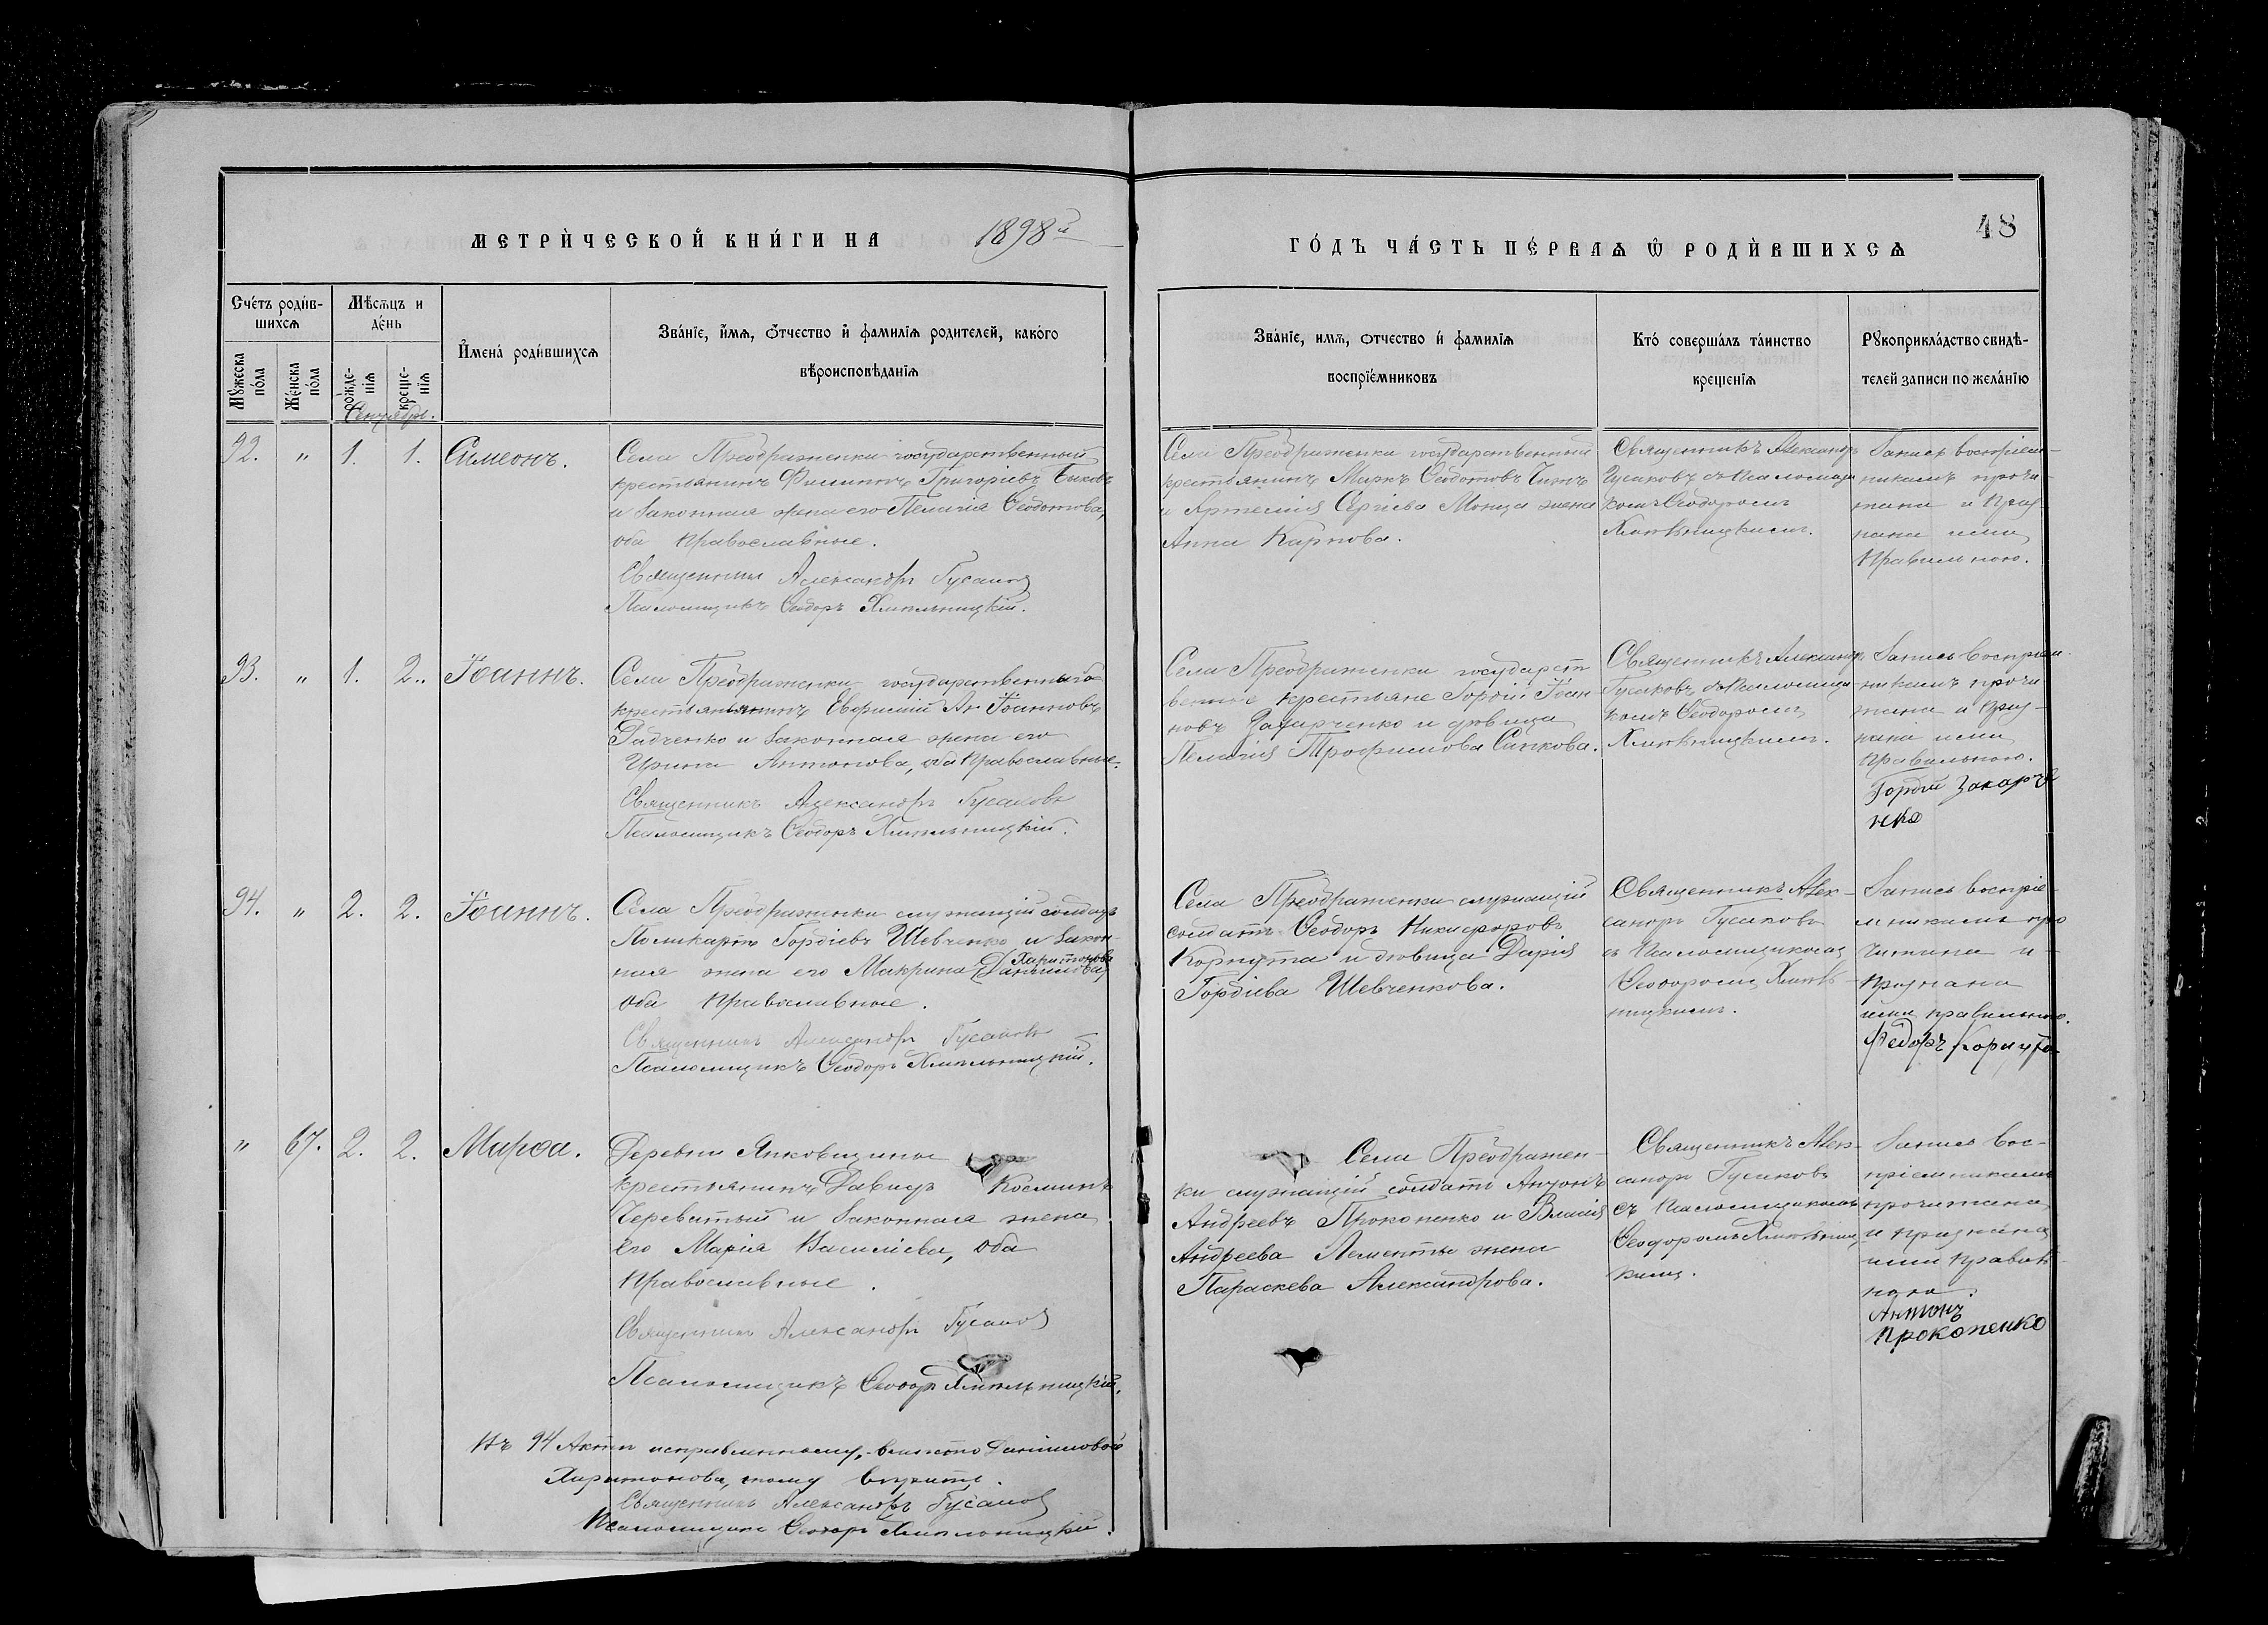 МЕТРИЧЕСКОЙ КНИГИ НА 1898й
ГОДЪ ЧАСТЬ ПЕРВАЯ Ѿ РОДИВШИХСЯ
48
Счетъ родив-
шихся
Мужеска
пола
Женска
пола
Мѣсяцъ и
день
рожде-
нія
креще-
нія
Имена родившихся
Званіе, имя, отчество и фамилія родителей, какого
вѣроисповѣданія
Званіе, имя, отчество и фамилія
воспріемниковъ
Кто совершалъ таинство
крещенія
Рукоприкладство свидѣ-
телей записи по желанію
Сентябрь.
92. " 1. 1. Симеонъ.
Села Преображенки государственный
крестьянинъ Филиппъ Григоріевъ Быковъ
и законная жена его Пелагія Ѳеодотова,
оба православные.
Священникъ Александръ Гусаковъ
Псаломщикъ Ѳеодоръ Хмѣльницкій.
Села Преображенки государственный
крестьянинъ Маркъ Ѳеодотовъ
и Артемія Сергіева жена
Анна Карпова.
Священникъ Александръ
Гусаковъ съ псаломщи
комъ Ѳеодоромъ
Хмѣльницкимъ.
Запись воспріем-
никамъ прочи-
тана и приз
нана ими
правильною.
93. " 1. 2. Іоаннъ.
Села Преображенки государственный
крестьянинъ Іоанновъ
Радченко и законная жена его
Ирина Антонова, оба православные.
Священникъ Александръ Гусаковъ
Псаломщикъ Ѳеодоръ Хмѣльницкій.
Села Преображенки государст
венные крестьяне Гордій Іоан
новъ Захарченко и дѣвица
Пелагія Трофимова Сапкова.
Священникъ Александръ
Гусаковъ съ псаломщи-
комъ Ѳеодоромъ
Хмѣльницкимъ.
Запись воспріем
никамъ прочи-
тана и приз-
нана ими
правильною.
Гордій Захарче
нко
94. " 2. 2. Іоаннъ.
Села Преображенки служащій солдатъ
Поликарпъ Гордіевъ Шевченко и закон-
Харитонова
ная жена его Макрина Даніилова,
оба православные.
Священникъ Александръ Гусаковъ
Псаломщикъ Ѳеодоръ Хмѣльницкій.
Села Преображенки служащій
солдатъ Ѳеодоръ Никифоровъ
Корнута и дѣвица Дарія
Гордіева Шевченкова.
Священникъ Алек-
сандръ Гусаковъ
съ псаломщикомъ
Ѳеодоромъ Хмѣль-
ницкимъ.
Запись воспріе-
мникамъ про
читана и
признана
ими правильною.
Федоръ Корнута
" 67. 2. 2. Марѳа.
Деревни Янковщины
крестьянинъ Давидъ Косминъ
Череватый и законная жена
его Марія Василіева, оба
православные.
Священникъ Александръ Гусаковъ
Псаломщикъ Ѳеодоръ Хмѣльницкій.
Села Преображен-
ки служащій солдатъ Антонъ
Андреевъ Прокопенко и Власія
Андреева жена
Параскева Александрова.
Священникъ Алек-
сандръ Гусаковъ
съ псаломщикомъ
Ѳеодоромъ Хмѣльниц
кимъ.
Запись вос-
пріемникамъ
прочитана
и признана
ими правиль-
ною.
Антонъ
Прокопенко
Въ 94 Актѣ исправленному, вмѣсто Даніиловой
Харитонова, тому вѣрить.
Священникъ Александръ Гусаковъ
Псаломщикъ Ѳеодоръ Хмѣльницкій.